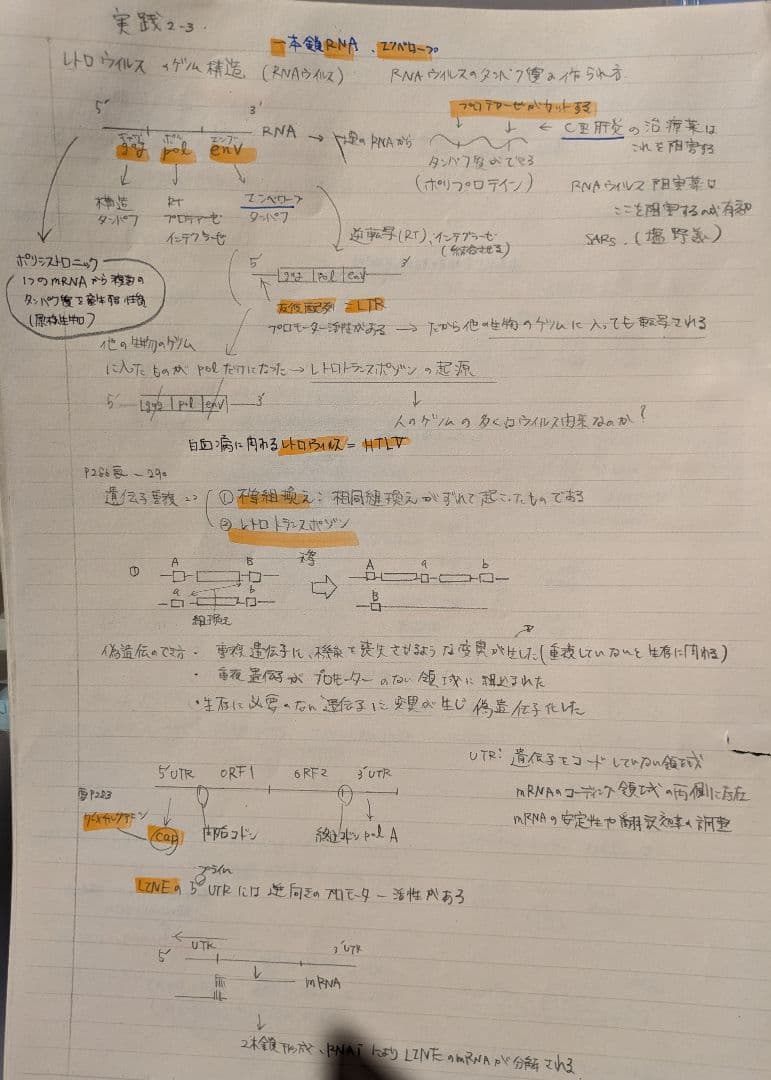 実践2-3.
一本鎖RNA、エンベロープ
レトロウイルスのゲノム構造 (RNAウイルス)
RNAウイルスのタンパク質の作られ方
5′ 3′ RNA
ギャグ ポル エンブ
gag pol env
プロテアーゼがカットする
タンパク質ができる
(ポリプロテイン)
← C型肝炎の治療薬は
これを阻害する
RNAウイルス阻害薬は
ここを阻害するのが有効
SARS. (塩野義)
構造
タンパク
RT
プロテアーゼ
インテグラーゼ
エンベロープ
タンパク
ポリシストロニック
1つのmRNAから複数の
タンパク質を産生する性質
(原核生物)
逆転写(RT)、インテグラーゼ
(結合させる)
5′ gag pol env 3′
反復配列 = LTR
プロモーター活性がある → だから他の生物のゲノムに入っても転写される
他の生物のゲノム
に入ったものが polだけになった → レトロトランスポゾンの起源
5′ gag pol env 3′
人のゲノムの多くはウイルス由来なのか?
白血病に関わるレトロウイルス = HTLV
P286表〜290
遺伝子重複
① 不等組換え:相同組換えがずれて起こったものである
② レトロトランスポゾン
① A B 不等 A a b
a b B
組換え
偽遺伝のでき方・重複遺伝子に、機能を喪失させるような変異が生じた(重複していないと生存に関わる)
・重複遺伝子がプロモーターのない領域に組込まれた
・生存に必要のない遺伝子に変異が生じ偽遺伝子化した
UTR: 遺伝子をコードしていない領域
mRNAのコーディング領域の両側に存在
mRNAの安定性や翻訳効率の調整
5′UTR ORF1 ORF2 3′UTR
P283
cap 開始コドン 終止コドン pol A
プライム
LINEの5′UTRには逆向きのプロモーター活性がある
5′ UTR 3′UTR
mRNA
2本鎖形成、RNAiによりLINEのmRNAが分解される